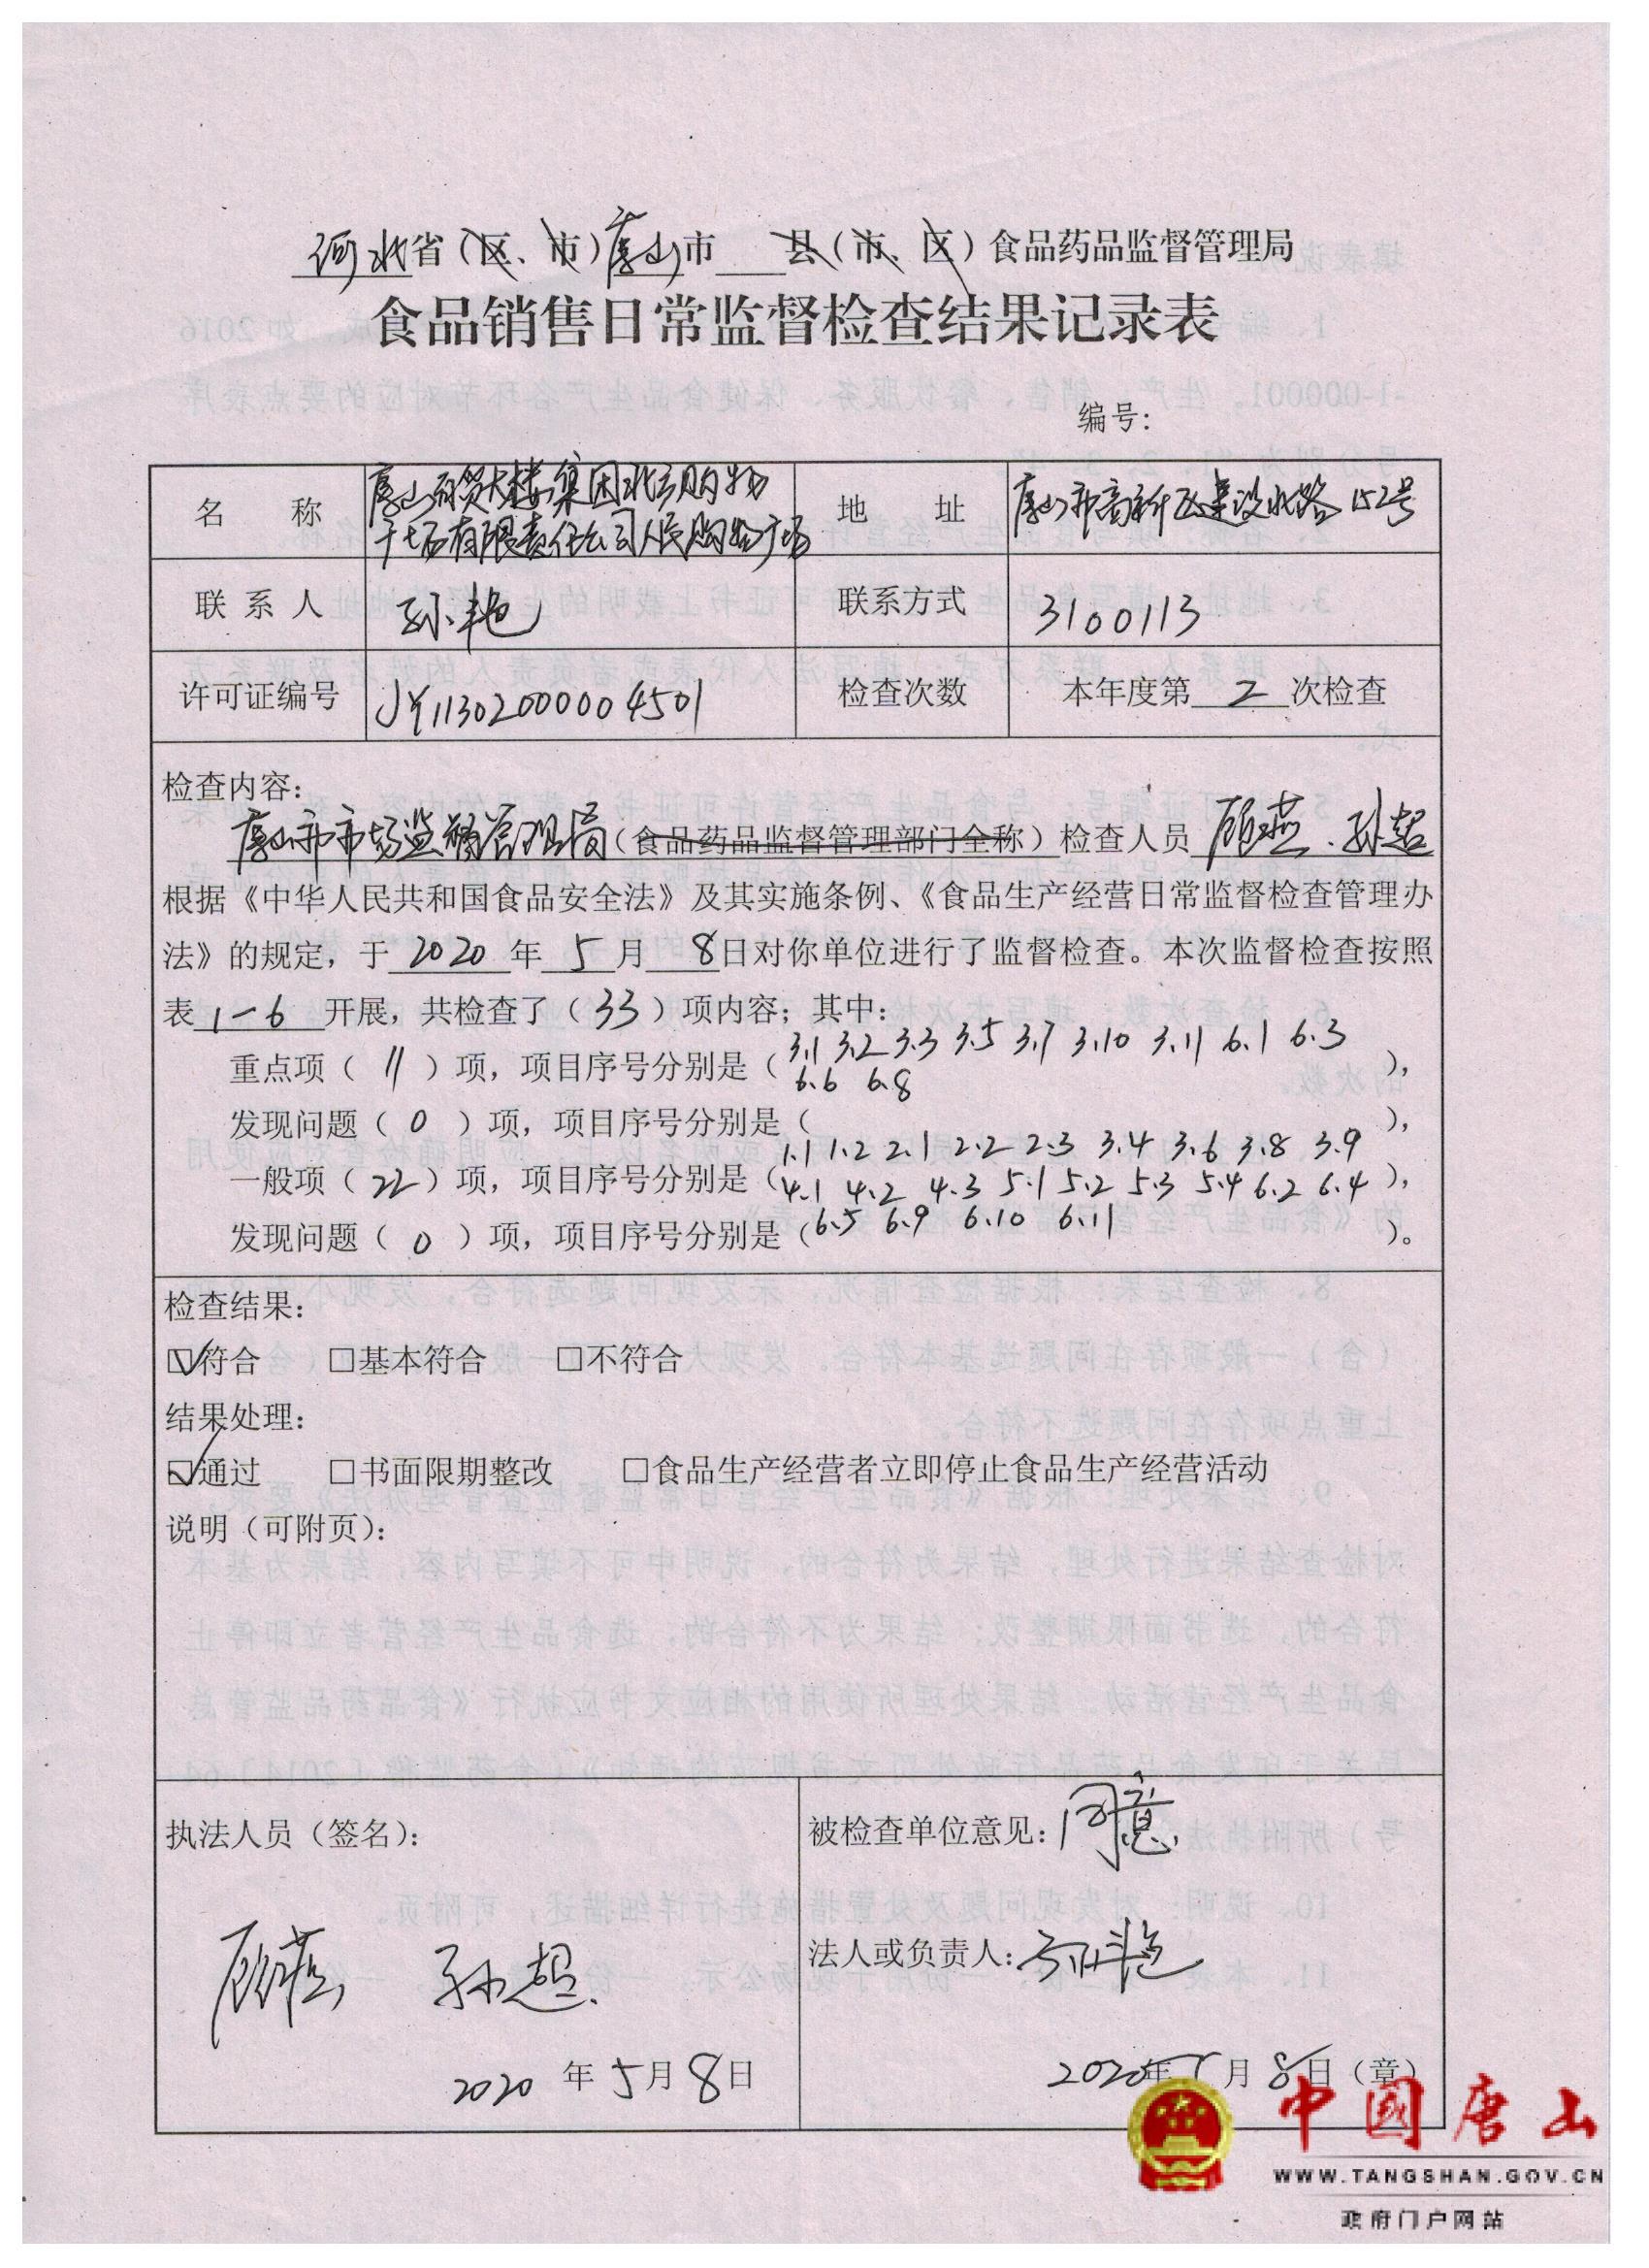 河北省（区、市）唐山市　　县（市、区）食品药品监督管理局
食品销售日常监督检查结果记录表
编号：
名　　称 唐山百货大楼集团北方购物
广场有限责任公司人民购物广场
地　　址 唐山市高新区建设北路152号
联 系 人 孙艳 联系方式 3100113
许可证编号 JY11302000004501 检查次数 本年度第 2 次检查
检查内容：
唐山市市场监督管理局（食品药品监督管理部门全称）检查人员 顾燕、孙超
根据《中华人民共和国食品安全法》及其实施条例、《食品生产经营日常监督检查管理办
法》的规定，于 2020 年 5 月 8日对你单位进行了监督检查。本次监督检查按照
表 1-6 开展，共检查了（33）项内容；其中：
重点项（11）项，项目序号分别是（3.1 3.2 3.3 3.5 3.7 3.10 3.11 6.1 6.3
6.6 6.8），
发现问题（0）项，项目序号分别是（　　），
一般项（22）项，项目序号分别是（1.1 1.2 2.1 2.2 2.3 3.4 3.6 3.8 3.9
4.1 4.2 4.3 5.1 5.2 5.3 5.4 6.2 6.4
6.5 6.9 6.10 6.11），
发现问题（0）项，项目序号分别是（　　）。
检查结果：
☑符合　□基本符合　□不符合
结果处理：
☑通过　□书面限期整改　□食品生产经营者立即停止食品生产经营活动
说明（可附页）：
执法人员（签名）：
顾燕　孙超
2020 年 5月8日
被检查单位意见：同意
法人或负责人：孙艳
2020年5月8日（章）
中国唐山
WWW.TANGSHAN.GOV.CN
政府门户网站